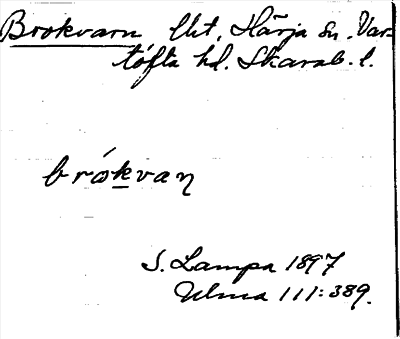 Brokvarn Utt, Härja sn. Var-
tofta hd. Skarab. l.
brókvaŋ
S. Lampa 1897
Ulma 111:389.